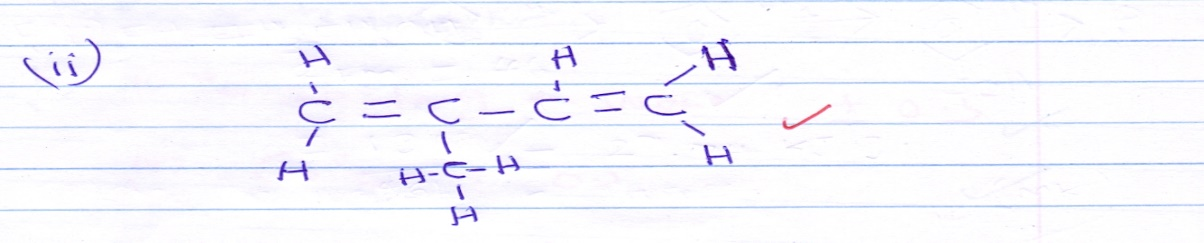 (ii)
H H H
C = C - C = C
H H-C-H H
H